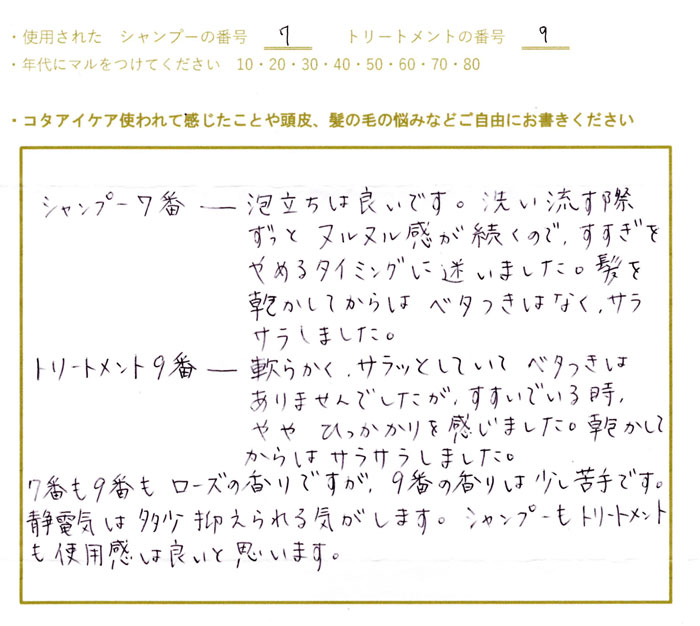 ・使用された　シャンプーの番号　7　　トリートメントの番号　9
・年代にマルをつけてください　10・20・30・40・50・60・70・80
・コタアイケア使われて感じたことや頭皮、髪の毛の悩みなどご自由にお書きください
シャンプー7番 ― 泡立ちは良いです。洗い流す際
ずっと ヌルヌル感が続くので、すすぎを
やめるタイミングに迷いました。髪を
乾かしてからは ベタつきはなく、サラ
サラしました。
トリートメント9番 ― 軟らかく、サラッとしていて ベタつきは
ありませんでしたが、すすいでいる時、
やや ひっかかりを感じました。乾かして
からは サラサラしました。
7番も9番も ローズの香りですが、9番の香りは少し苦手です。
静電気は多少抑えられる気がします。シャンプーもトリートメント
も使用感は良いと思います。